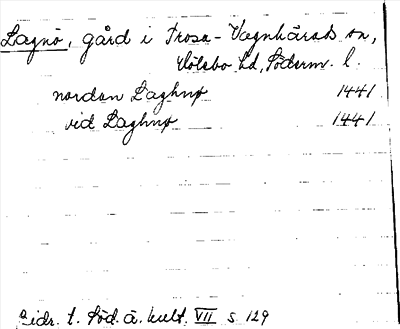 Lagnö, gård i Trosa-Vagnhärads sn,
Hölebo hd, Söderm. l.
nordan Laghnø 1441
vid Laghnø 1441
Bidr. t. Söd. ä. kult. VII s. 129